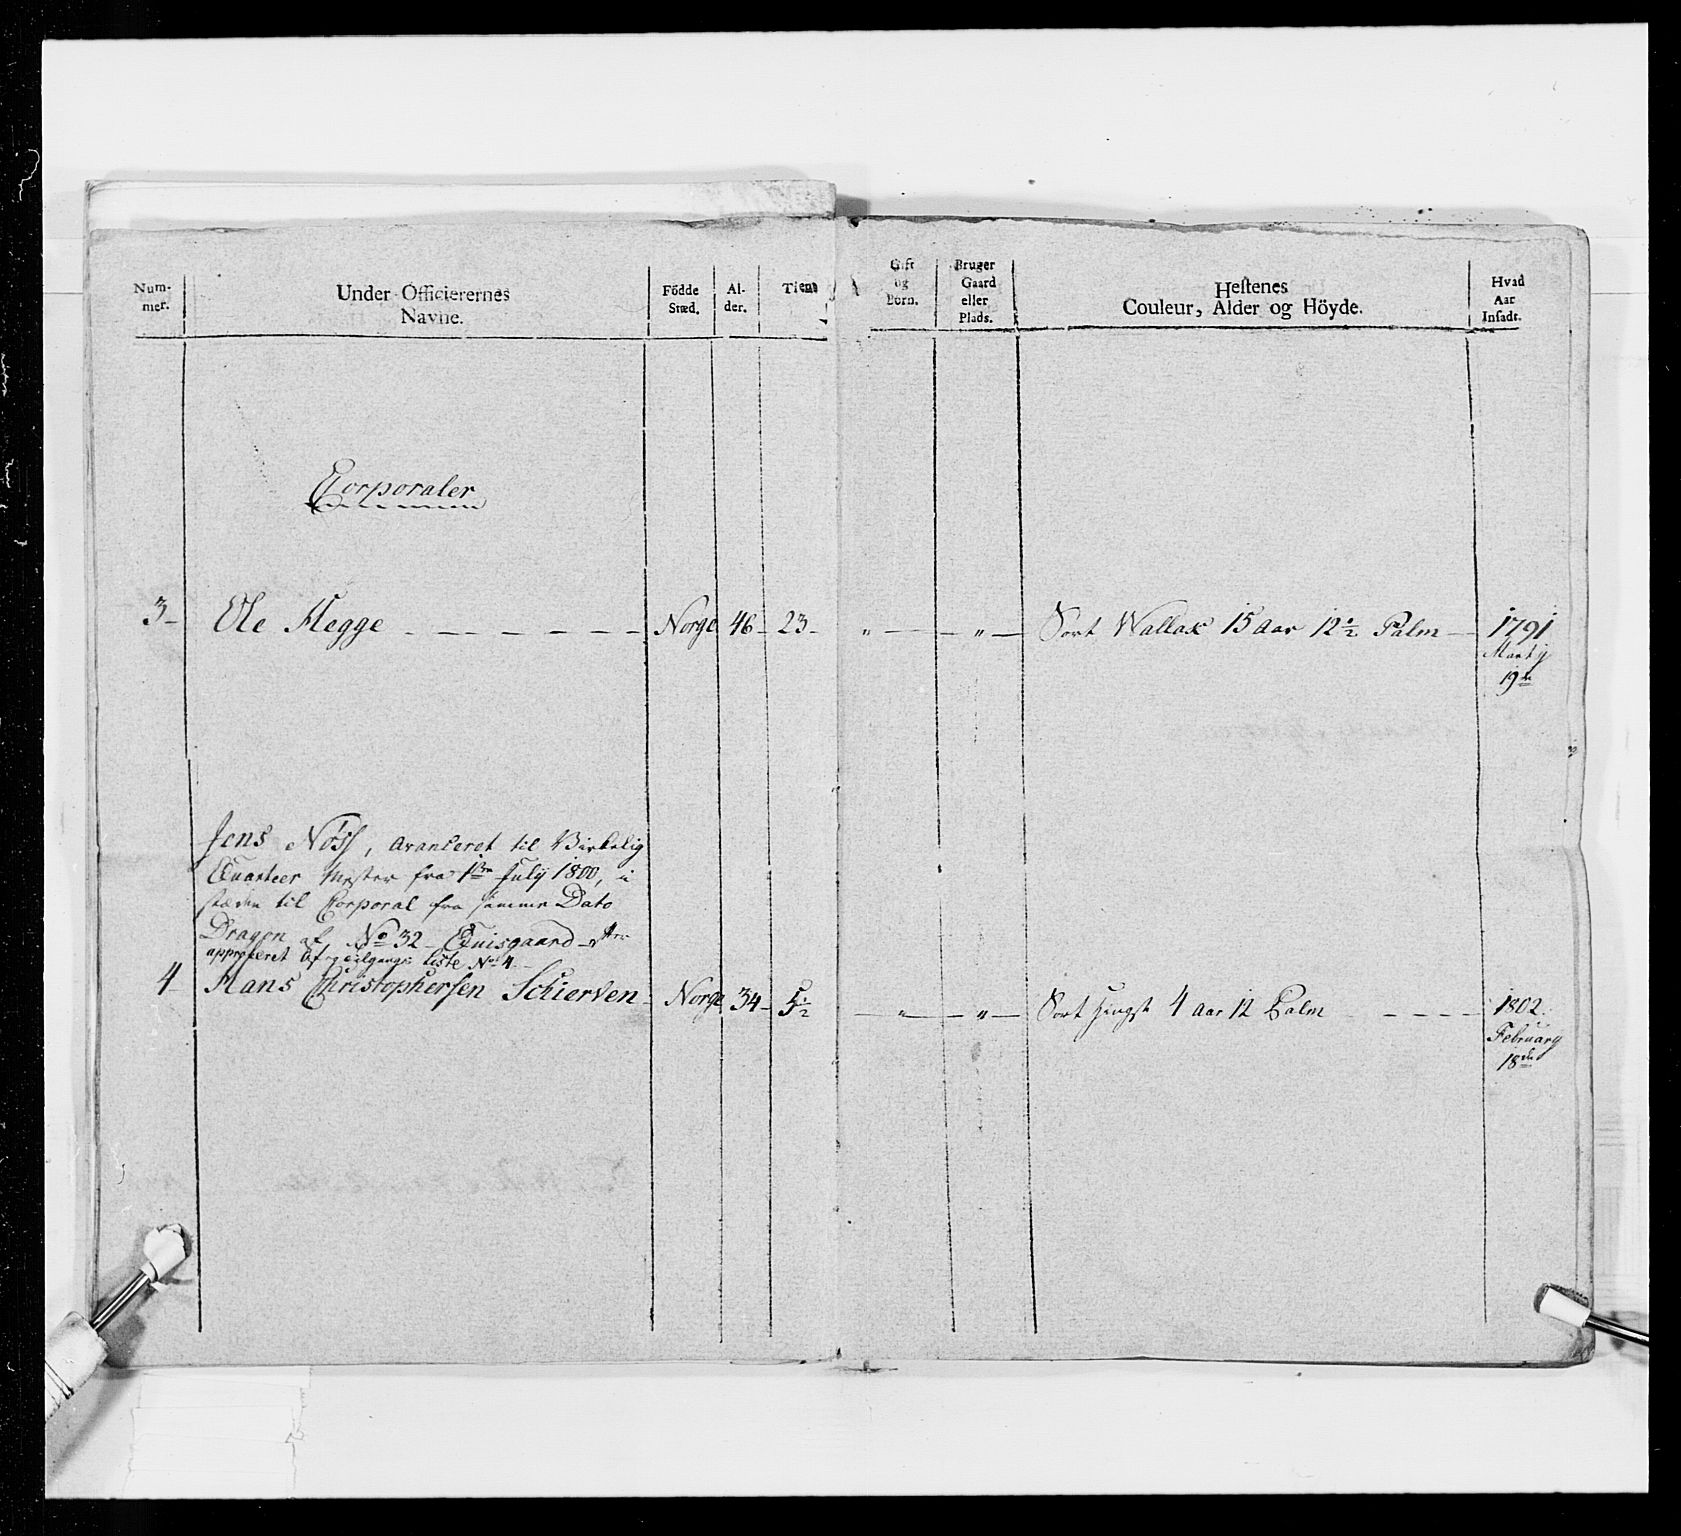 Num-
mer.
Under-Officierernes
Navne.
Födde
Stæd.
Al-
der.
Tient
Gift
og
Börn.
Bruger
Gaard
eller
Plads.
Hestenes
Couleur, Alder og Höyde.
Hvad
Aar
Insadt.
Corporaler
3 Ole Hegge Norge 46 23 " " Sort Wallak 15 Aar 12½ Palm 1791
Martij
19de
Jens Nöss, avanceret til Virkelig
Quarteer Mester fra 1ste July 1800, i
stæden til Corporal fra samme Dato
Dragon af No 32 Quisgaard
approberet Afgangs Liste No 4
4 Hans Christophersen Schierven Norge 34 5½ " " Sort Hingst 4 Aar 12 Palm 1802.
February
18de